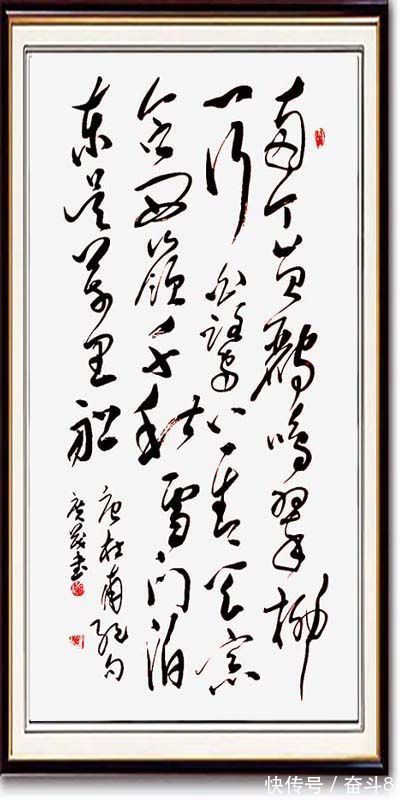 两个黄鹂鸣翠柳
一行白鹭上青天窗
含西岭千秋雪门泊
东吴万里船
唐杜甫绝句
书
快传号 / 奋斗8